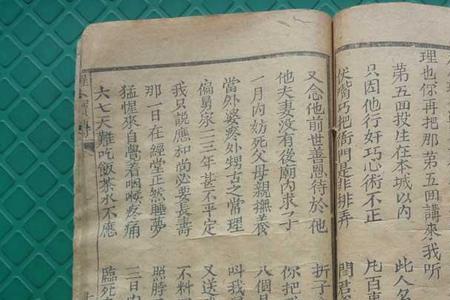 理也你再把那第五回講來我听
第五回投生在本城以內 此人名
只因他行奸巧心術不正
巧把衙門是非排弄
又念他前世善恩待於他 折子
他夫妻没有後廟內求子 你把
一月內妨死父母親撫養 八個
當外婆疼外甥古之常理 叫我
偏舅家二三年甚不平定 又送
我只說應和尚必要長壽 不料
那一日在經堂正然睡夢 照脖
猛惺來自覺着咽喉疼痛 三日
六七天難吃飯茶水不應 臨死